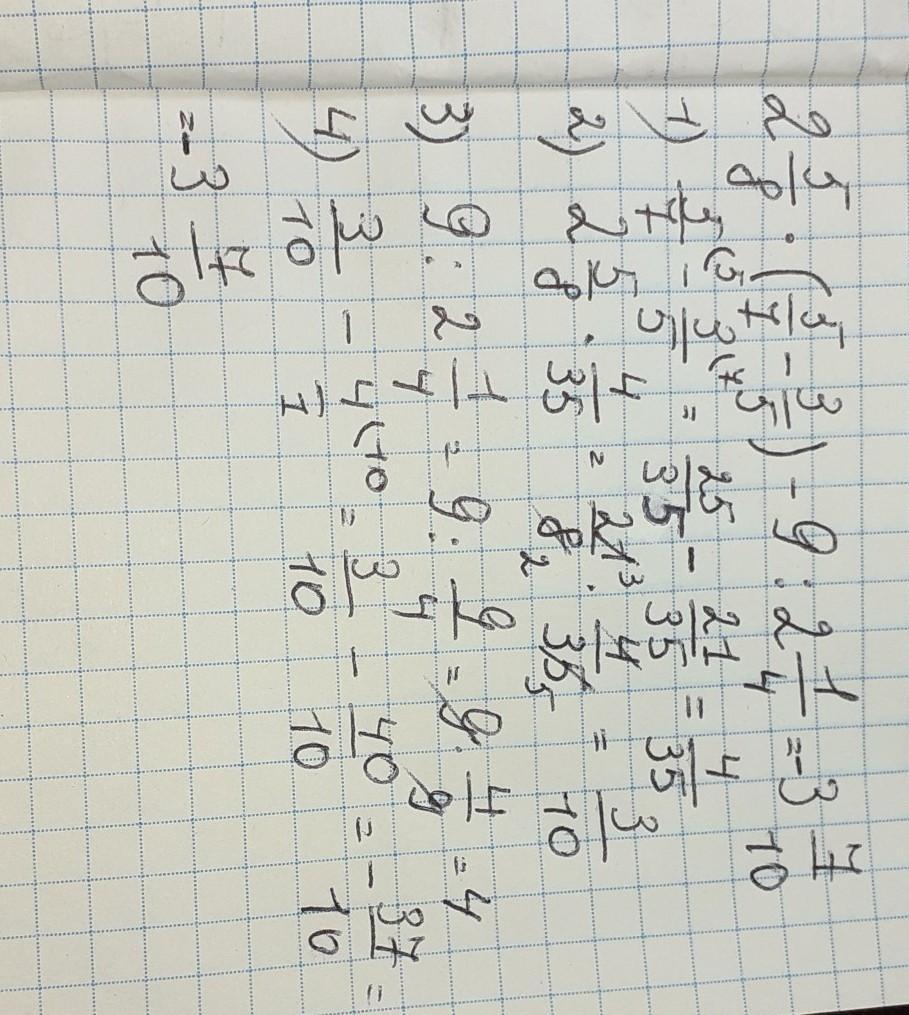 2 5/8 · (5/7 - 3/5) - 9 : 2 1/4 = -3 7/10
1) 5/7 (5 - 3/5 (7 = 25/35 - 21/35 = 4/35
2) 2 5/8 · 4/35 = 21 3/8 2 · 4/35 5 = 3/10
3) 9 : 2 1/4 = 9 : 9/4 = 9 · 4/9 = 4
4) 3/10 - 4/1 (10 = 3/10 - 40/10 = - 37/10 =
= -3 7/10